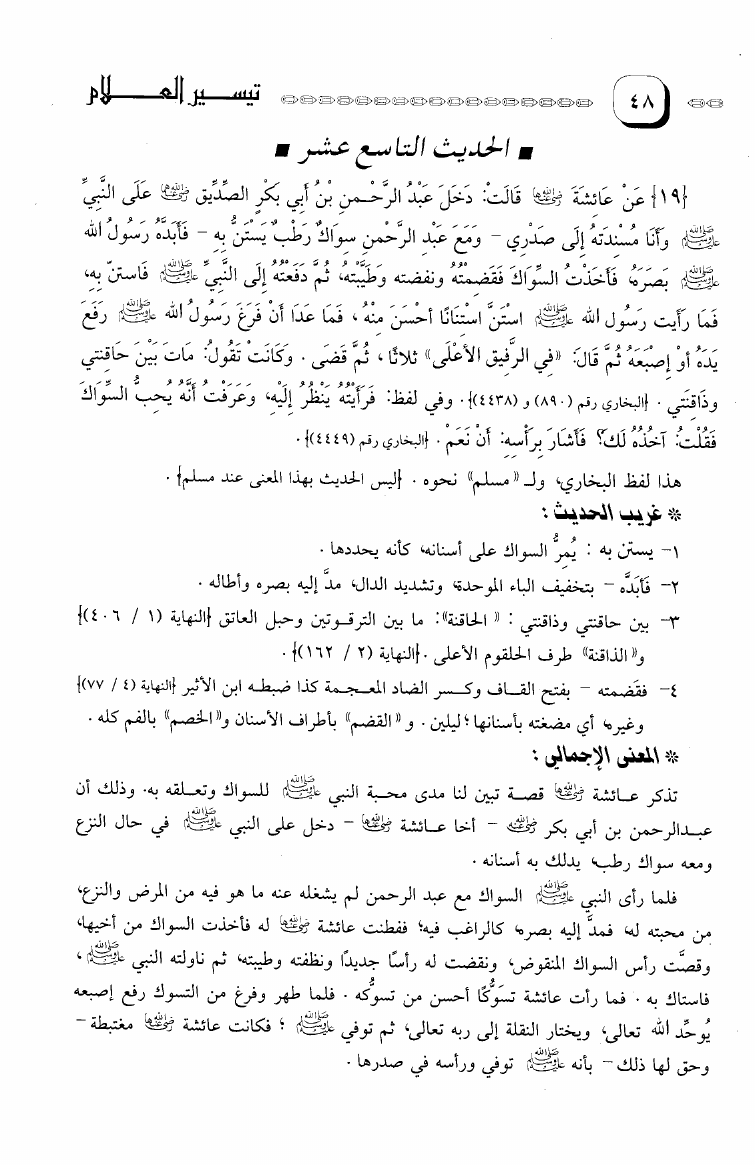 ٤٨ تيســـير العـــلام
■ الحديث التاسع عشر ■
{١٩} عَنْ عَائِشَةَ رضي الله عنها قَالَتْ: دَخَلَ عَبْدُ الرَّحْـمنِ بْنُ أبي بَكْرٍ الصِّدِّيق رضي الله عنه عَلَى النَّبِيِّ
ﷺ وَأَنَا مُسْنِدَتهُ إلَى صَدْرِي – وَمَعَ عَبد الرَّحمنِ سِواكٌ رَطْبٌ يَسْتَنُّ بِهِ – فَأَبَدَّهُ رَسُولُ الله
ﷺ بَصَرَهُ، فَأَخَذْتُ السِّوَاكَ فَقَضمْتُهُ ونفضته وَطَيَّبْتُه، ثُمَّ دَفَعْتُهُ إلَى النَّبِيِّ ﷺ فَاستنّ بِهِ،
فَمَا رَأيت رَسُولَ الله ﷺ استَنَّ اسْتنَانًا أحْسَنَ مِنْهُ، فَما عَدَا أنْ فَرَغَ رَسُولُ الله ﷺ رَفَعَ
يَدَهُ أوْ إصْبَعَهُ ثُمَّ قَالَ: «في الرَّفيق الأعْلَى» ثلاثًا، ثُمَّ قَضَى. وَكَانَتْ تَقُولُ: مَاتَ بَيْنَ حَاقنتي
وذَاقنَتي. {البخاري رقم (٨٩٠) و (٤٤٣٨)}. وفي لفظ: فَرَأَيْتُهُ يَنْظُرُ إلَيْهِ، وَعَرَفْتُ أنَّهُ يُحبُّ السِّوَاكَ
فَقُلْتُ: آخُذُهُ لَكَ؟ فَأَشَارَ بِرَأْسِهِ: أنْ نَعَمْ. {البخاري رقم (٤٤٤٩)}.
هذا لفظ البخاري، ولـ «مسلم» نحوه. {ليس الحديث بهذا المعنى عند مسلم}.
* غريب الحديث:
١– يستن به: يُمِرُّ السواك على أسنانه، كأنه يحددها.
٢– فَأَبَدَّه – بتخفيف الباء الموحدة، وتشديد الدال، مدَّ إليه بصره وأطاله.
٣– بين حاقنتي وذاقنتي: «الحاقنة»: ما بين الترقوتين وحبل العاتق {النهاية (١ / ٤٠٦)}
و«الذاقنة» طرف الحلقوم الأعلى. {النهاية (٢ / ١٦٢)}.
٤– فقَضمته – بفتح القـاف وكـسر الضاد المعـجمة كذا ضبطـه ابن الأثير {النهاية (٤ / ٧٧)}
وغيره، أي مضغته بأسنانها؛ ليلين. و «القضم» بأطراف الأسنان و«الخضم» بالفم كله.
* المعنى الإجمالي:
تذكر عـائشة رضي الله عنها قصـة تبين لنا مدى محبـة النبي ﷺ للسواك وتعـلقه به. وذلك أن
عبـدالرحمن بن أبي بكر رضي الله عنه – أخـا عـائشة رضي الله عنها – دخل على النبي ﷺ في حال النزع
ومعه سواك رطب، يدلك به أسنانه.
فلما رأى النبي ﷺ السواك مع عبد الرحمن لم يشغله عنه ما هو فيه من المرض والنزع،
من محبته له، فمدَّ إليه بصره، كالراغب فيه؛ ففطنت عائشة رضي الله عنها له فأخذت السواك من أخيها،
وقصَّت رأس السواك المنقوض، ونقضت له رأسًا جديدًا ونظفته وطيبته، ثم ناولته النبي ﷺ،
فاستاك به. فما رأت عائشة تسَوّكًا أحسن من تسوُّكه. فلما طهر وفرغ من التسوك رفع إصبعه
يُوحِّد الله تعالى، ويختار النقلة إلى ربه تعالى، ثم توفي ﷺ؛ فكانت عائشة رضي الله عنها مغتبطة–
وحق لها ذلك – بأنه ﷺ توفي ورأسه في صدرها.